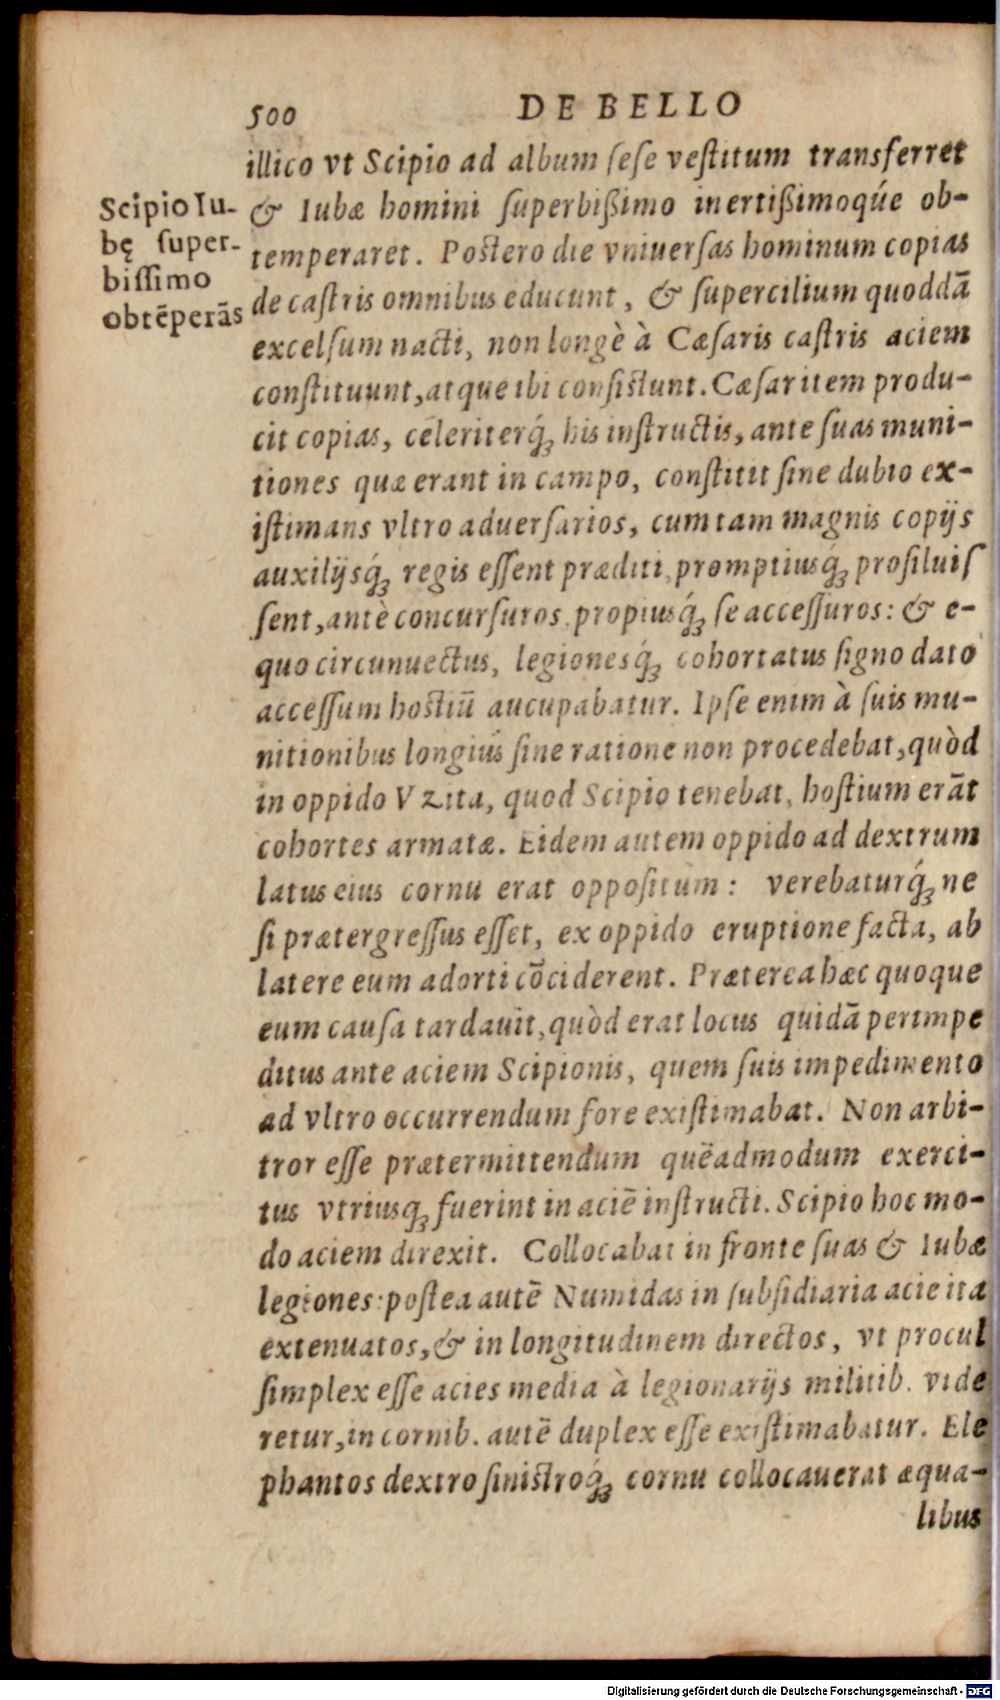 500 DE BELLO
illico vt Scipio ad album ſeſe veſtitum transferret
& Iubæ homini ſuperbißimo inertißimoqúe ob-
temperaret. Postero die vniuerſas hominum copias
de caſtris omnibus educunt, & ſupercilium quoddā
excelſum nacti, non longè à Cæſaris caſtris aciem
conſtituunt, atque ibi conſistunt. Cæſar item produ-
cit copias, celeriterq́ꝫ his inſtructis, ante ſuas muni-
tiones quæ erant in campo, conſtitit ſine dubio ex-
iſtimans vltro aduerſarios, cum tam magnis copijs
auxilijsq́ꝫ regis eſſent præditi, promptiusq́ꝫ proſiluiſ
ſent, antè concurſuros, propiusq́ꝫ ſe acceſſuros: & e-
quo circunuectus, legionesq́ꝫ cohortatus ſigno dato
acceſſum hostiū aucupabatur. Ipſe enim à ſuis mu-
nitionibus longiús ſine ratione non procedebat, quòd
in oppido Vzita, quod Scipio tenebat, hoſtium erāt
cohortes armatæ. Eidem autem oppido ad dextrum
latus eius cornu erat oppoſitum: verebaturq́ꝫ ne
ſi prætergreſſus eſſet, ex oppido eruptione facta, ab
latere eum adorti cōciderent. Præterea hæc quoque
eum cauſa tardauit, quòd erat locus quidā perimpe
ditus ante aciem Scipionis, quem ſuis impedimento
ad vltro occurrendum fore exiſtimabat. Non arbi-
tror eſſe prætermittendum quēadmodum exerci-
tus vtriusqꝫ fuerint in aciē inſtructi. Scipio hoc mo-
do aciem direxit. Collocabat in fronte ſuas & Iubæ
legiones: poſtea autē Numidas in ſubſidiaria acie ita
extenuatos, & in longitudinem directos, vt procul
ſimplex eſſe acies media à legionarijs militib. vide
retur, in cornib. autē duplex eſſe exiſtimabatur. Ele
phantos dextro ſinistroq́ꝫ cornu collocauerat æqua-
libus
Scipio Iu-
bę ſuper-
biſſimo
obtēperās
Digitalisierung gefördert durch die Deutsche Forschungsgemeinschaft - DFG